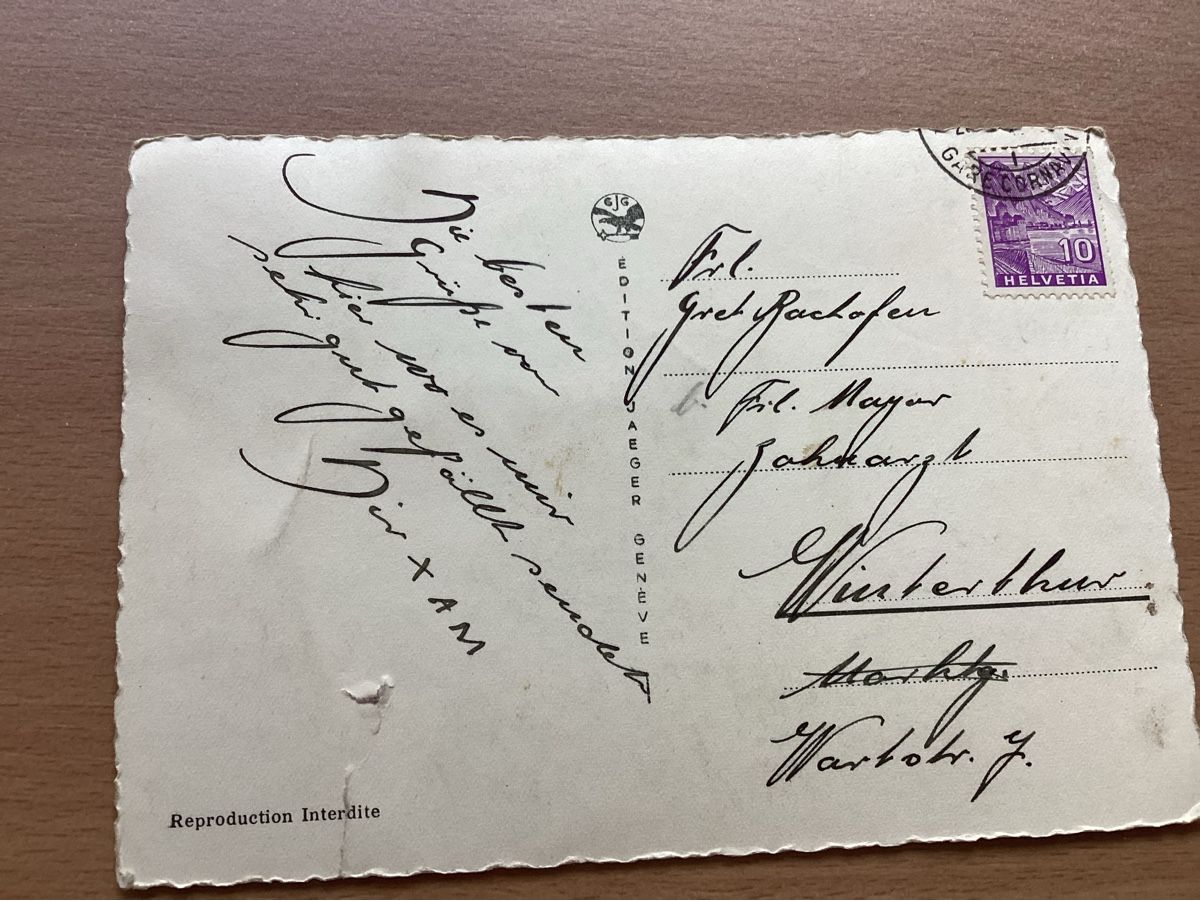 Die besten
Grüße von
hier wo es mir
sehr gut gefällt sendet
Dir X AM
Reproduction Interdite
GJG
ÉDITION JAEGER GENÈVE
GARE CORNAVIN
1
10
HELVETIA
Frl.
Gret Bachofen
b. Frl. Mayer
Zahnarzt
Winterthur
Marktg.
Wartstr. 7.